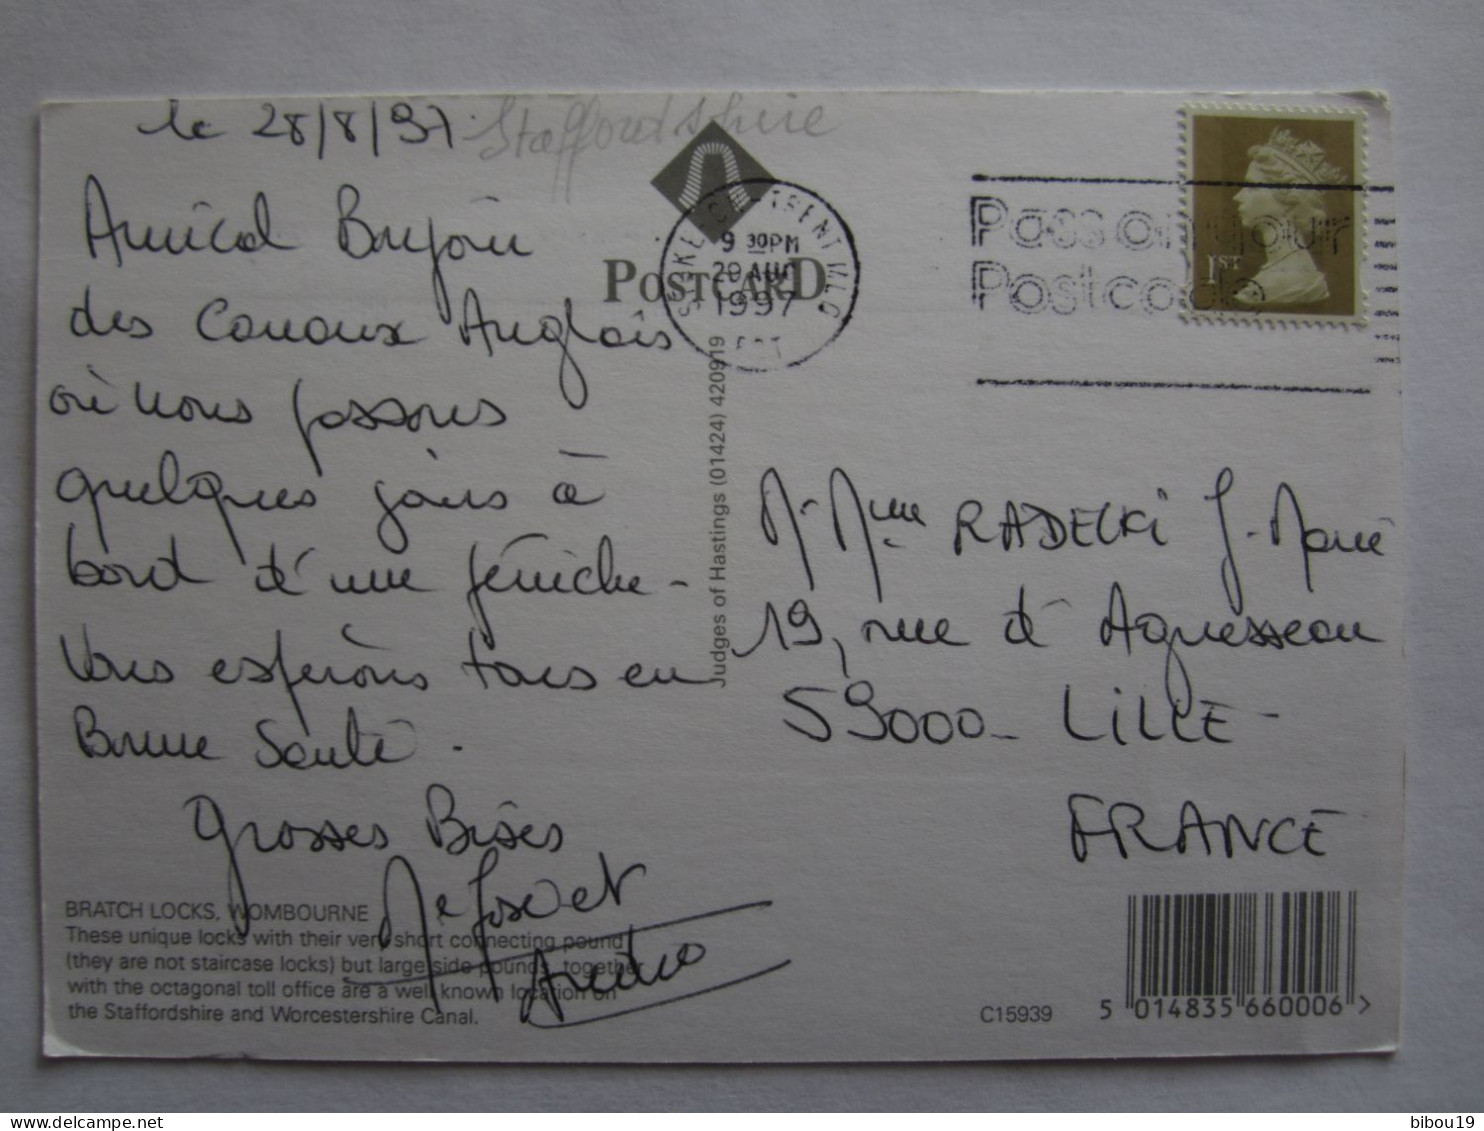 le 28/8/97.
Staffordshire
Amical Bonjour
des Canaux Anglais
où nous passons
quelques jours à
bord d'une péniche -
Vous espérons tous en
Bonne Santé.
grosses Bises
POSTCARD
STOKE ON TRENT
9 30PM
1997
Pass on your
Postcode
1ST
Judges of Hastings (01424) 420919
M. Mme RADECKI J-Marie
19, rue d'Aguesseau
59000 - LILLE -
FRANCE
BRATCH LOCKS, WOMBOURNE
These unique locks with their very short connecting pound
(they are not staircase locks) but large side pounds, together
with the octagonal toll office are a well known location on
the Staffordshire and Worcestershire Canal.
C15939
5 014835 660006 >
bibou19